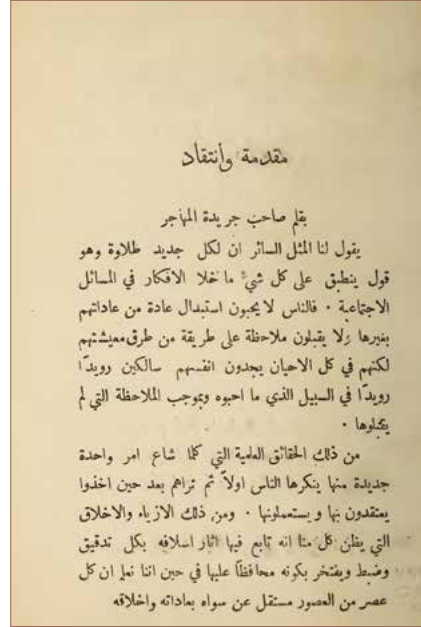 مقدمة وأنتقاد
بقلم صاحب جريدة المهاجر
يقول لنا المثل السائر ان لكل جديد طلاوة وهو
قول ينطبق على كل شيءٍ ما خلا الافكار في المسائل
الاجتماعية ٠ فالناس لا يحبون استبدال عادة من عاداتهم
بغيرها ولا يقبلون ملاحظة على طريقة من طرق معيشتهم
لكنهم في كل الاحيان يجدون انفسهم سالكين رويدًا
رويدًا في السبيل الذي ما احبوه وبموجب الملاحظة التي لم
يقبلوها ٠
من ذلك الحقائق العلمية التي كلما شاع امر واحدة
جديدة منها ينكرها الناس اولاً ثم تراهم بعد حين اخذوا
يعتقدون بها ويستعملونها ٠ ومن ذلك الازياء والاخلاق
التي يظن كل منا انه تابع فيها اثار اسلافه بكل تدقيق
وضبط ويفتخر بكونه محافظًا عليها في حين اننا نعلم ان كل
عصر من العصور مستقل عن سواه بعاداته واخلاقه